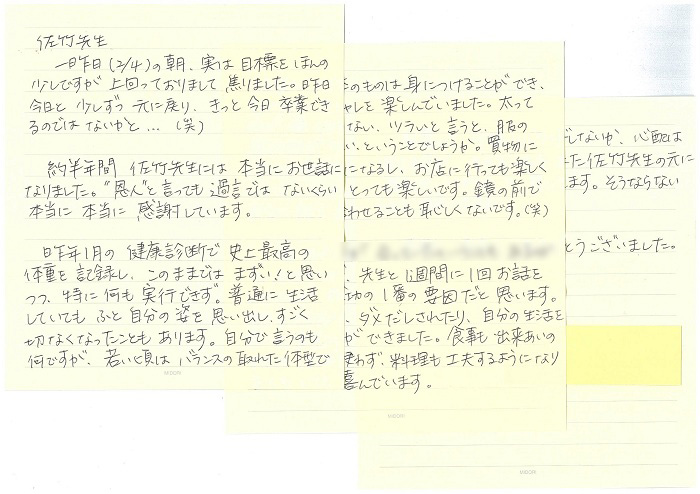 佐竹先生
一昨日(2/4)の朝、実は目標をほんの
少しですが上回っておりまして焦りました。昨日
今日と少しずつ元に戻り、きっと今日卒業でき
るのではないかと…(笑)
約半年間 佐竹先生には本当にお世話に
なりました。"恩人"と言っても過言ではないくらい
本当に本当に感謝しています。
昨年1月の健康診断で史上最高の
体重を記録し、このままではまずい!と思い
つつ、特に何も実行できず。普通に生活
していてもふと自分の姿を思い出し、すごく
切なくなったこともあります。自分で言うのも
何ですが、若い頃はバランスの取れた体型で
MIDORI
のものは身につけることができ、
ャレを楽しんでいました。太って
ない、ツラいと言うと、服の
い、ということでしょうか。買物に
になるし、お店に行っても楽しく
とっても楽しいです。鏡の前で
わせることも恥しくないです。(笑)
先生と1週間に1回お話を
功の1番の要因だと思います。
、ダメだしされたり、自分の生活を
ができました。食事も出来あいの
わず、料理も工夫するようになり
喜んでいます。
MIDORI
しないか、心配は
た佐竹先生の元に
ます。そうならない
とうございました。
MIDORI